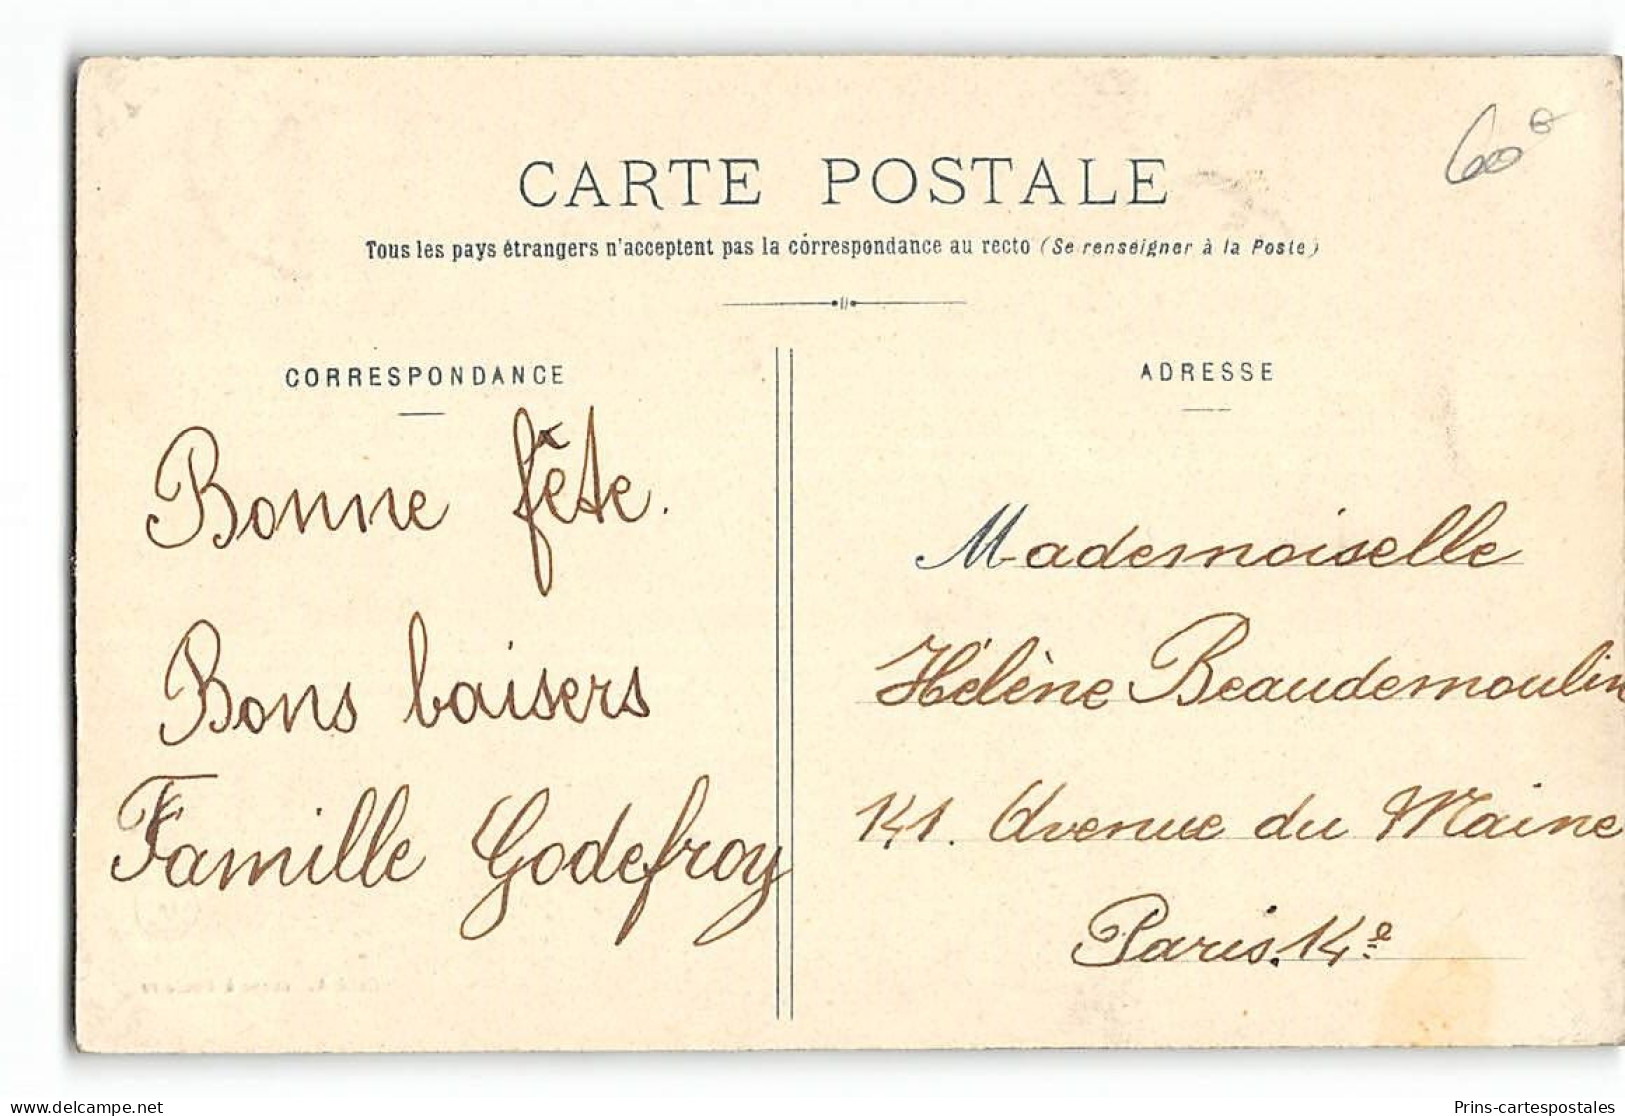 60
CARTE POSTALE
Tous les pays étrangers n'acceptent pas la correspondance au recto (Se renseigner à la Poste)
CORRESPONDANCE
Bonne fête.
Bons baisers
Famille Godefroy
ADRESSE
Mademoiselle
Hélène Beaudemoulin
141. Avenue du Maine
Paris. 14e
www.delcampe.net
Prins-cartespostales